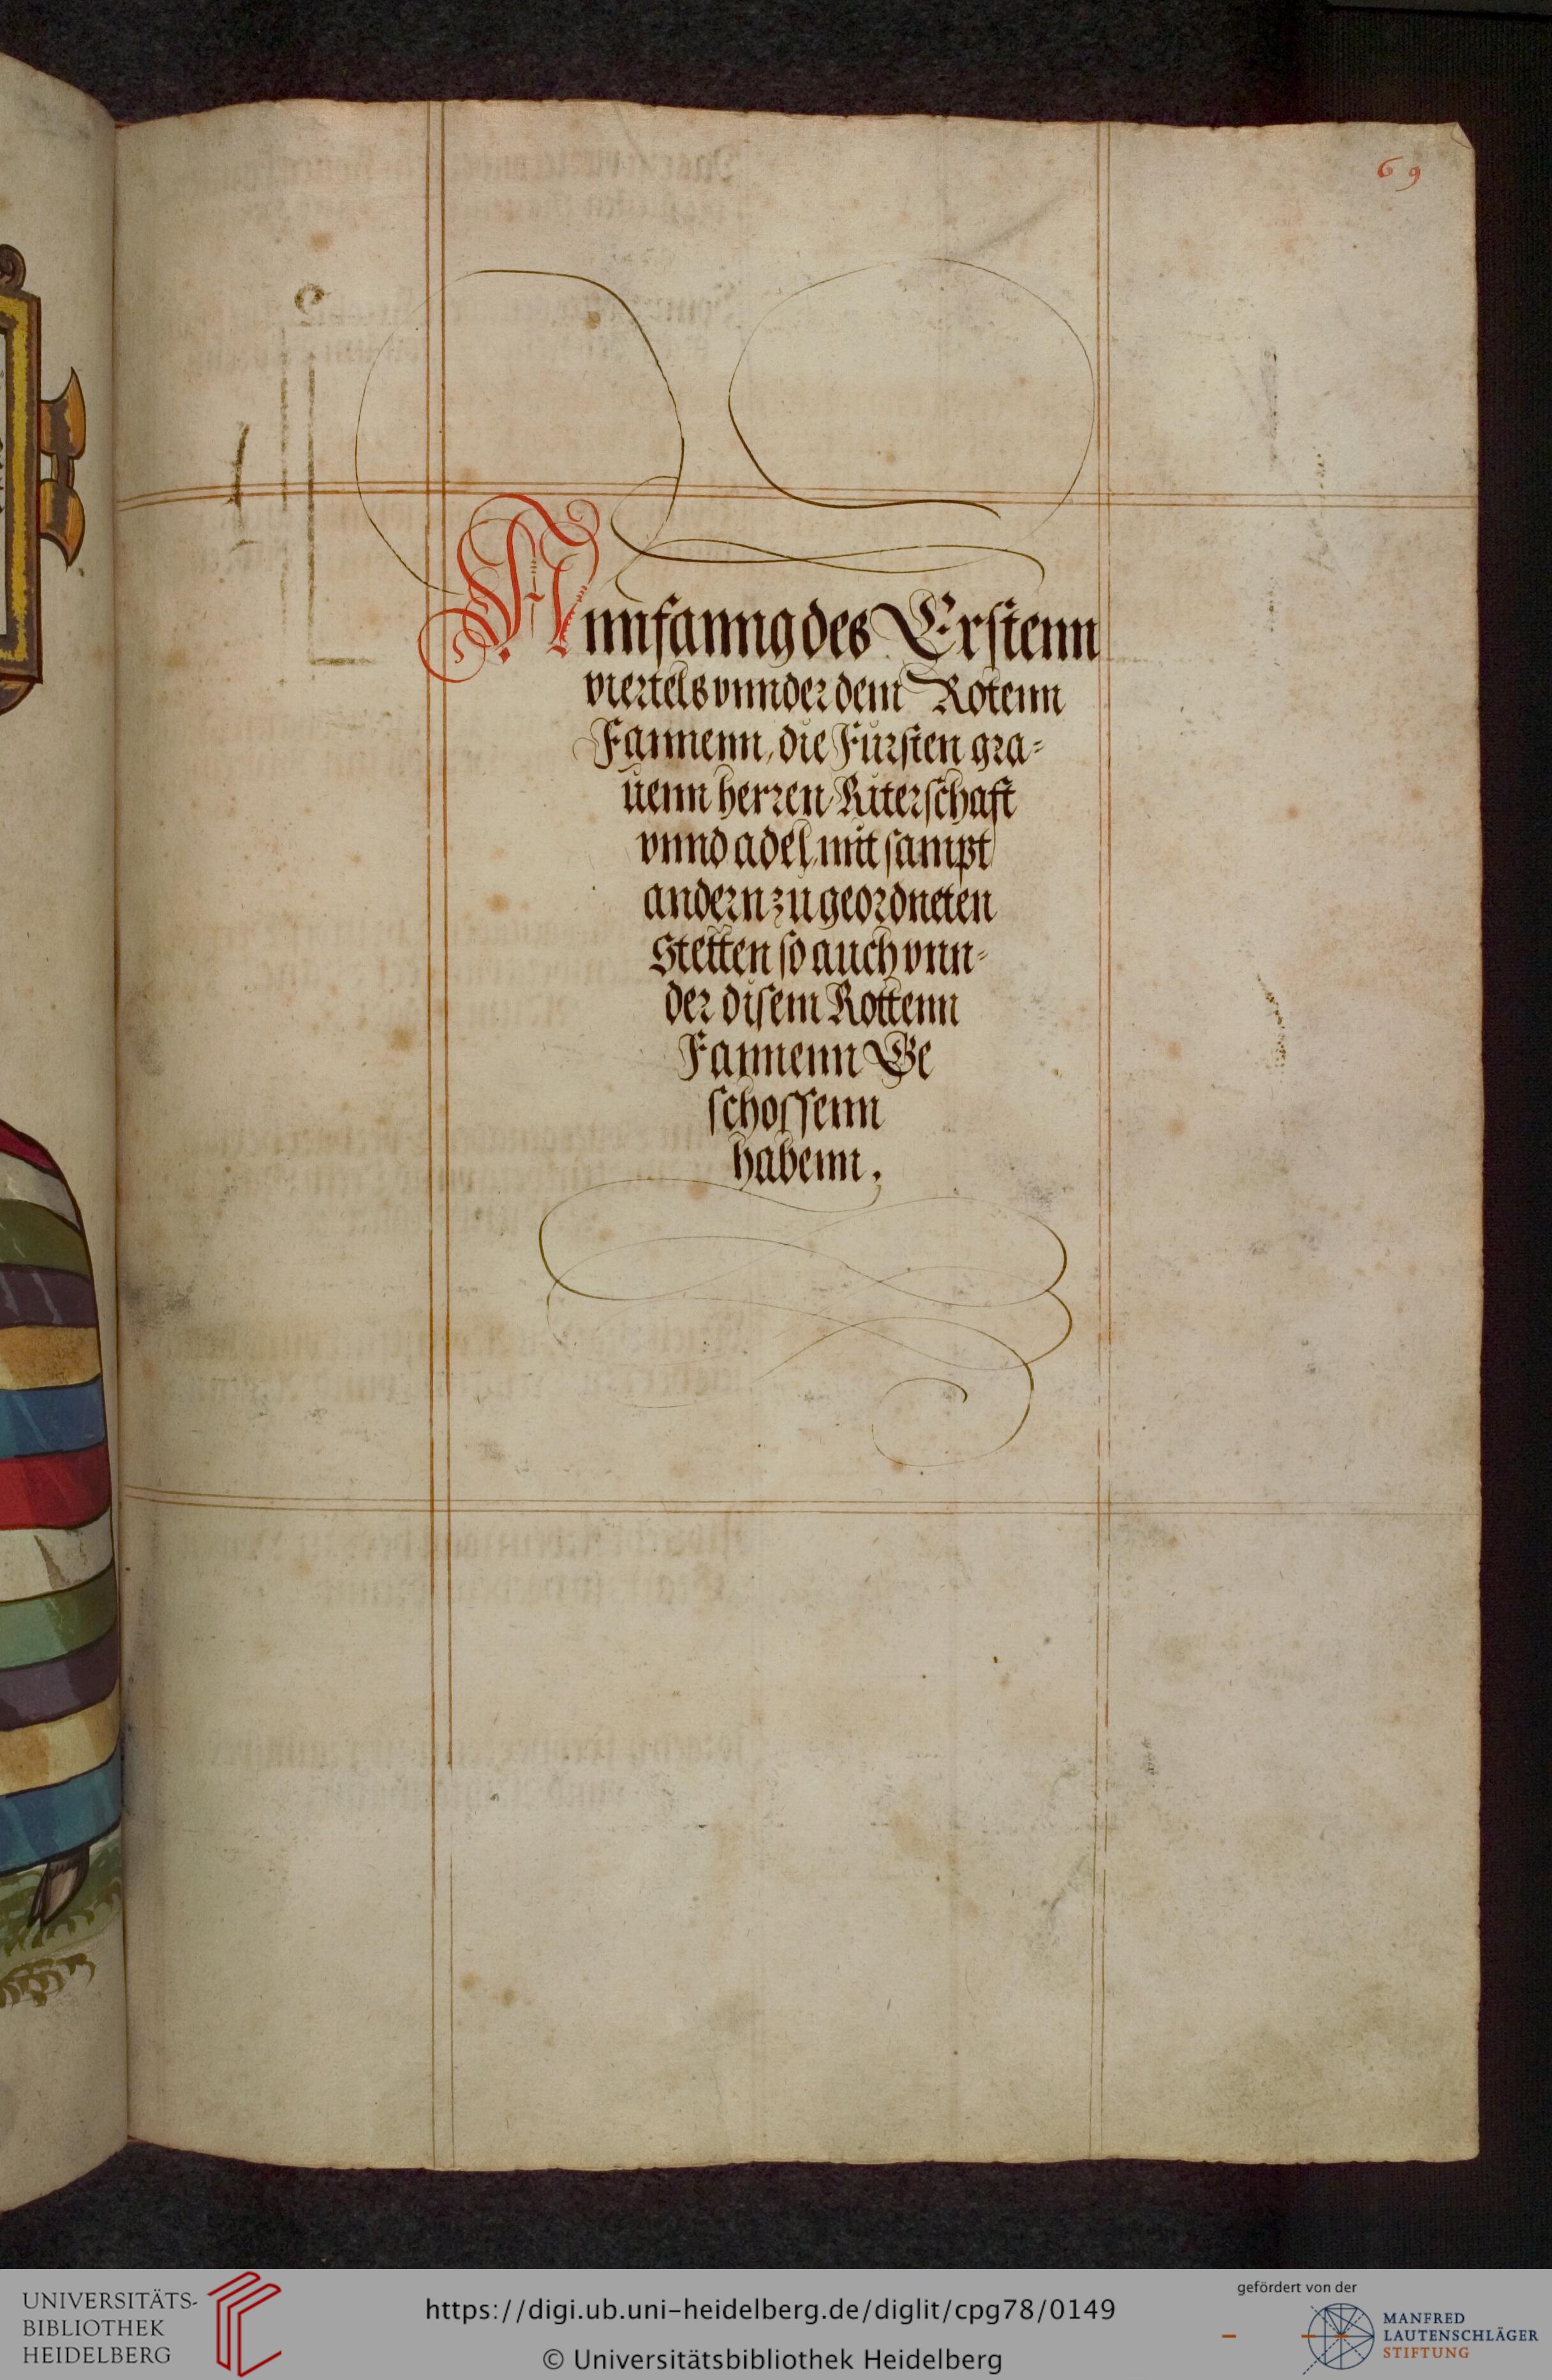 69
Annfanng des Erstenn
viertels vnnder dem Rotenn
Fannenn, die Fürsten gra-
uenn herren Riterschaft
vnnd adel, mit sampt
andern zu geordneten
Stetten so auch vnn-
der disem Rottenn
Fannenn Ge
schossenn
habenn.
UNIVERSITÄTS-
BIBLIOTHEK
HEIDELBERG
https://digi.ub.uni-heidelberg.de/diglit/cpg78/0149
© Universitätsbibliothek Heidelberg
gefördert von der
MANFRED
LAUTENSCHLÄGER
STIFTUNG